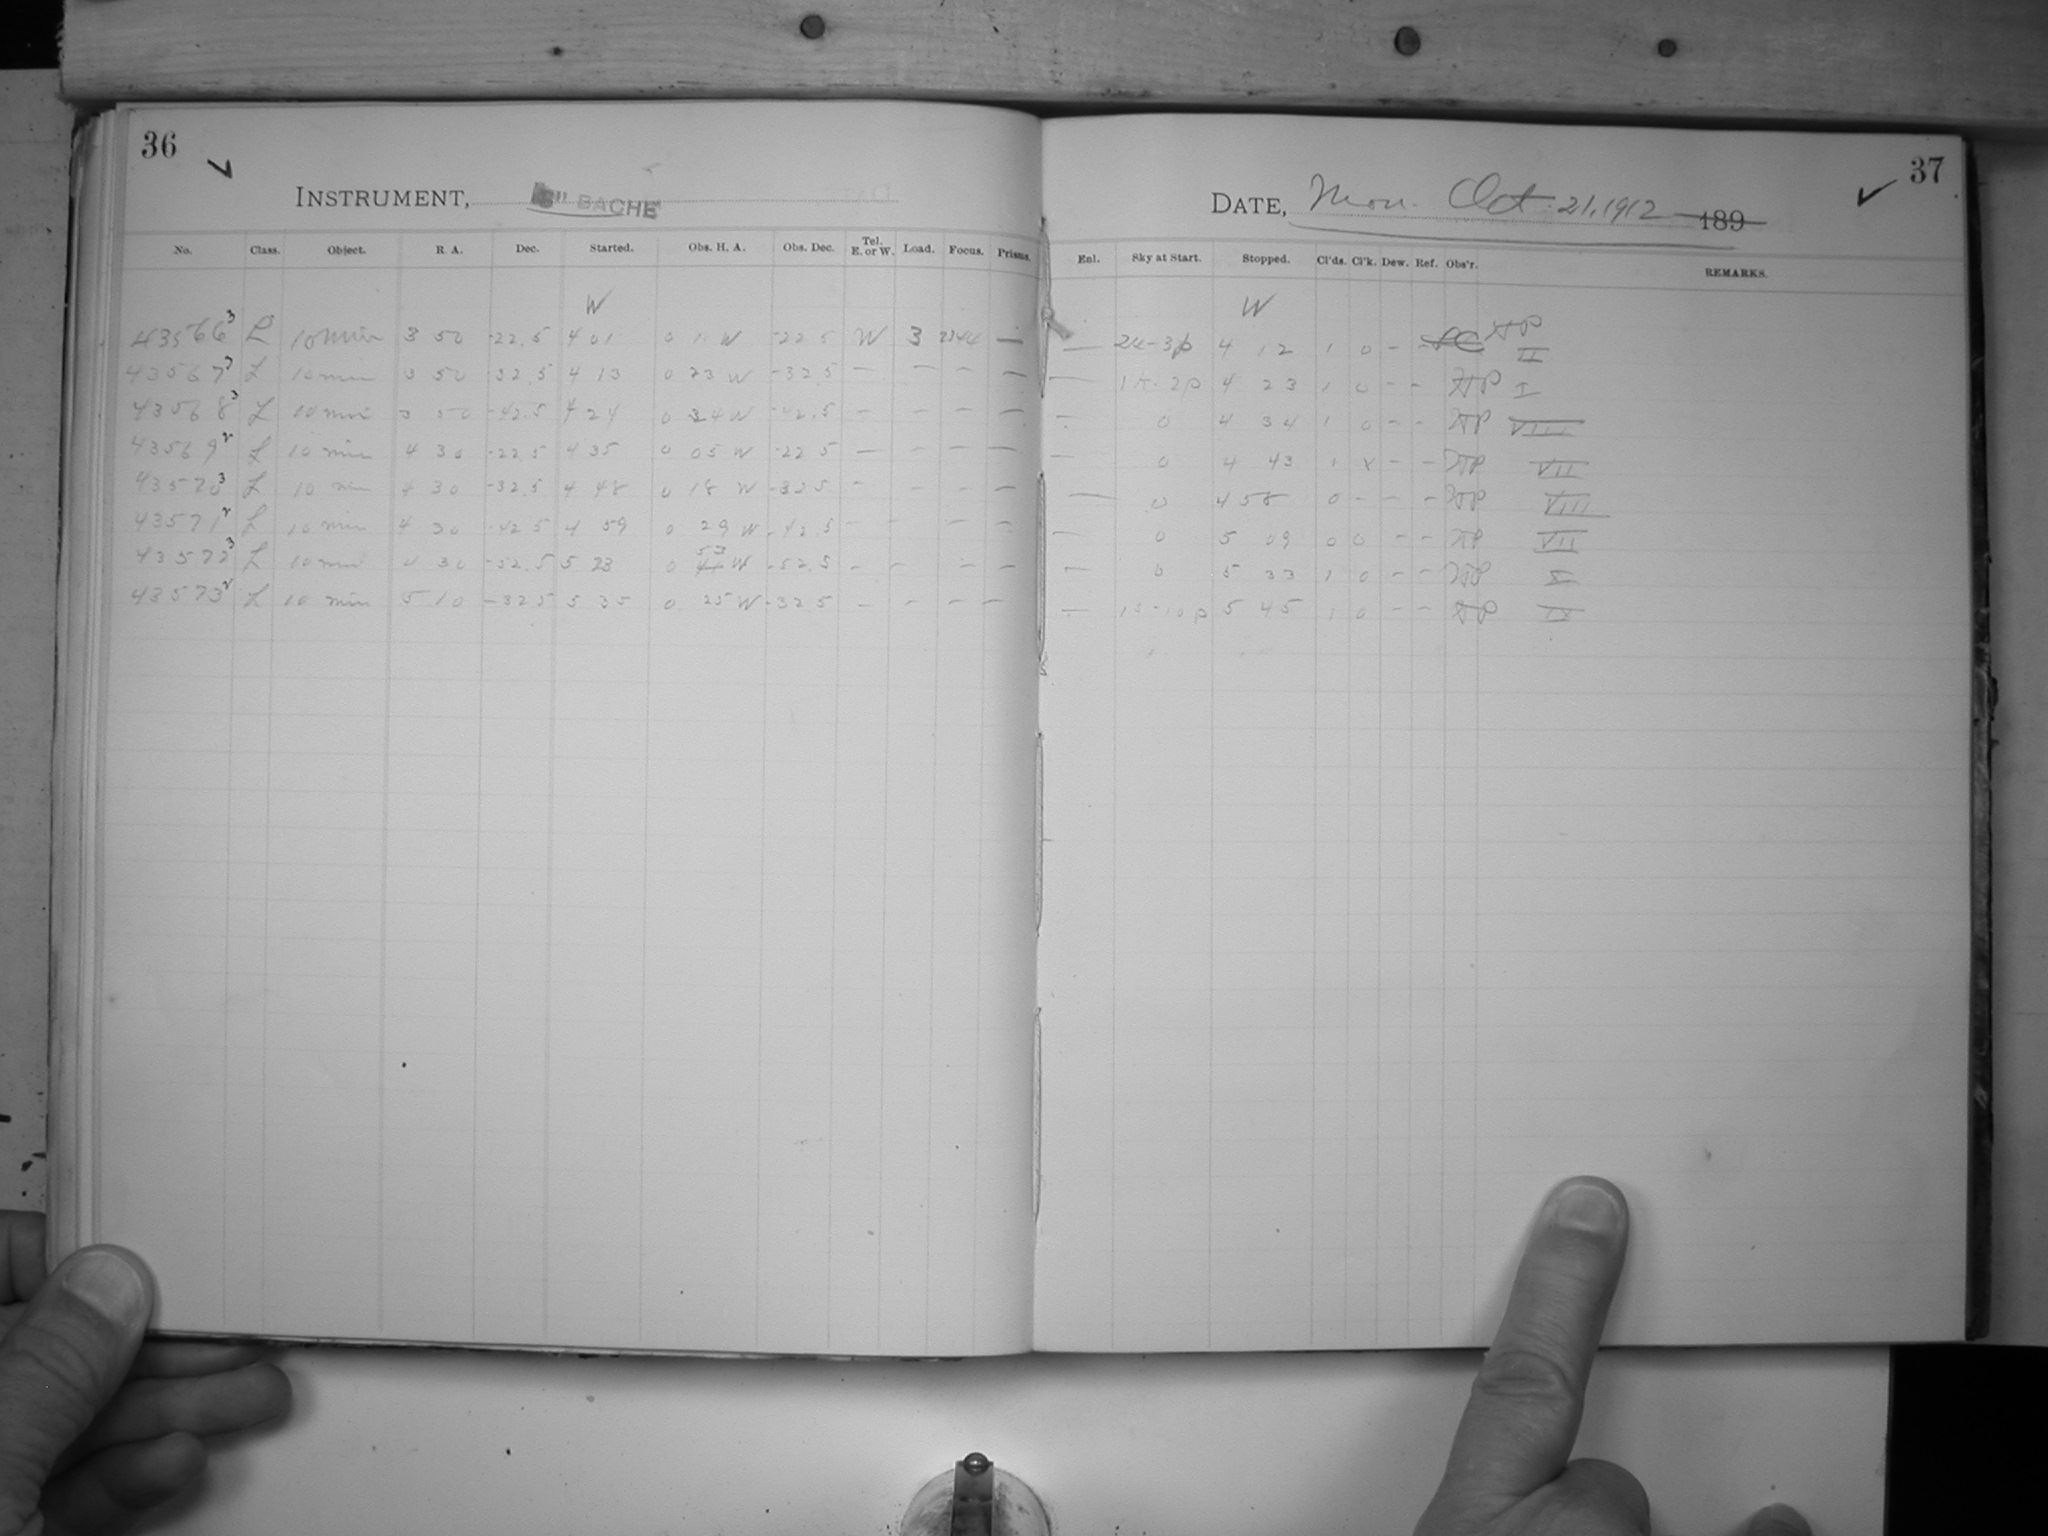 36
INSTRUMENT, 8" BACHE
No. Class. Object. R. A. Dec. Started. Obs. H. A. Obs. Dec. Tel. E. or W. Load. Focus. Prisms.
W
43566 3 L 10 min 3 50 -22.5 4 01 0 11 W -22.5 W 3 —
43567 3 L 10 min 3 50 -32.5 4 13 0 23 W -32.5 — — — —
43568 3 L 10 min 3 50 -42.5 4 24 0 34 W -42.5 — — — —
43569 2 L 10 min 4 30 -22.5 4 35 0 05 W -22.5 — — — —
43570 3 L 10 min 4 30 -32.5 4 48 0 18 W -32.5 — — — —
43571 2 L 10 min 4 30 -42.5 4 59 0 29 W -42.5 — — — —
43572 3 L 10 min 4 30 -52.5 5 23 0 53 W -52.5 — — — —
43573 2 L 10 min 5 10 -32.5 5 35 0 25 W -32.5 — — — —
37
DATE, Mon. Oct. 21, 1912 189
Enl. Sky at Start. Stopped. Cl'ds. Cl'k. Dew. Ref. Obs'r. REMARKS.
W
— 4 12 1 0 - - II
— 4 23 1 0 - - I
— 0 4 34 1 0 - - VIII
— 0 4 43 1 x - - VII
— 0 4 58 0 - - - VIII
— 0 5 09 0 0 - - VII
— 0 5 33 1 0 - - X
— 5 45 1 0 - - IX